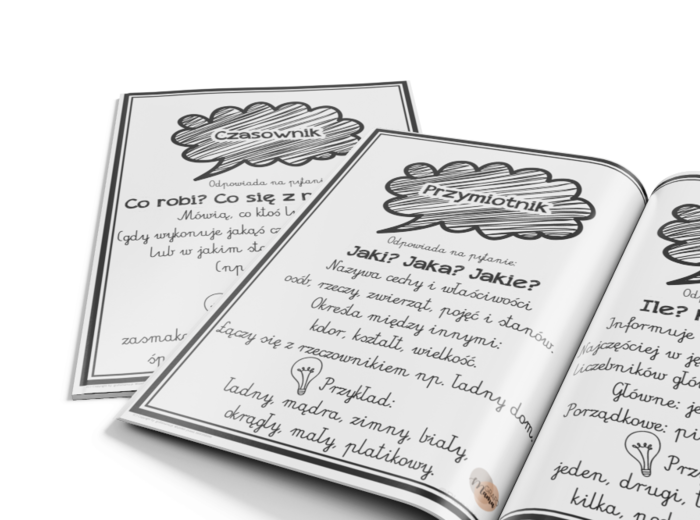 Czasownik
Odpowiada na pytani
Co robi? Co się z
Mówią, co ktoś
(gdy wykonuje jakąś
lub w jakim
(np.
zasmak
Przymiotnik
Odpowiada na pytanie:
Jaki? Jaka? Jakie?
Nazywa cechy i właściwości
osób, rzeczy, zwierząt, pojęć i stanów.
Określa między innymi:
kolor, kształt, wielkość.
Łączy się z rzeczownikiem np. ładny dom.
Przykład:
ładny, mądra, zimny, biały,
okrągły, mały, platikowy.
Ile?
Informuje
Najczęściej w
liczebników
Główne:
Porządkowe:
jeden, drugi,
kilka,